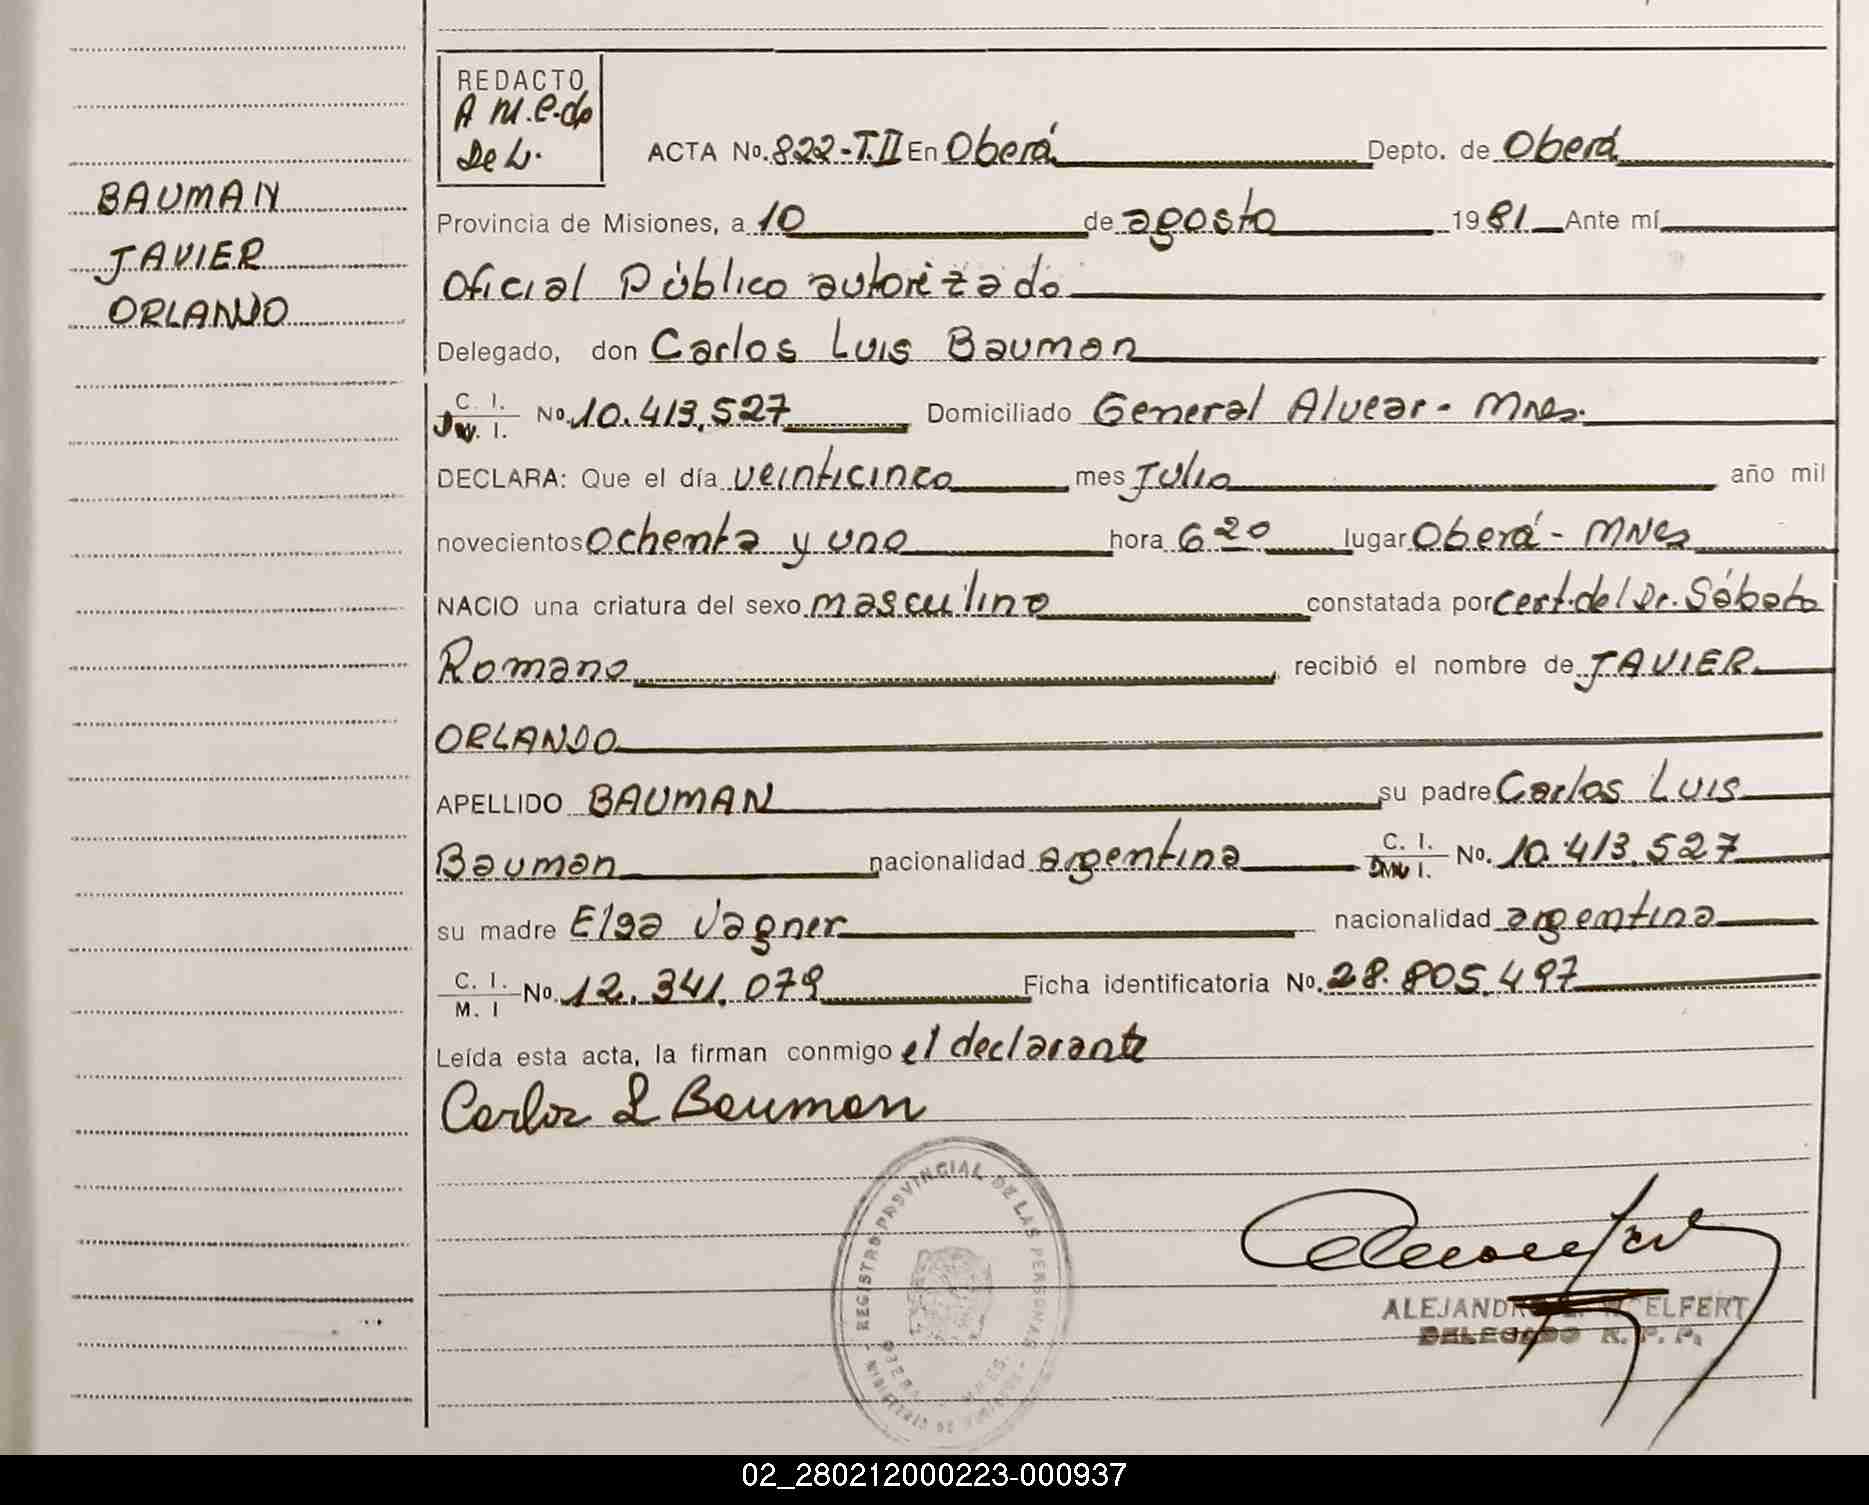 BAUMAN
JAVIER
ORLANDO
REDACTO
A M.e.do
De L.
ACTA No. 822-T.II En Oberá Depto. de Oberá
Provincia de Misiones, a 10 de agosto 1981 Ante mí
Oficial Público autorizado
Delegado, don Carlos Luis Bauman
C. I.
No. 10.413.527 Domiciliado General Alvear - Mnes.
DECLARA: Que el día veinticinco mes Julio año mil
novecientos ochenta y uno hora 6 20 lugar Oberá - MNes
NACIO una criatura del sexo masculino constatada por cert. del Dr. Sábato
Romano recibió el nombre de JAVIER
ORLANDO
APELLIDO BAUMAN su padre Carlos Luis
Bauman nacionalidad argentina C. I. No. 10.413.527
su madre Elsa Vagner nacionalidad argentina
C. I.
M. I No. 12.341.079 Ficha identificatoria No. 28.805.497
Leída esta acta, la firman conmigo el declarante
Carlos L Bauman
REGISTRO PROVINCIAL DE LAS PERSONAS
ELFERT
DELEGADO R. P. P.
02_280212000223-000937